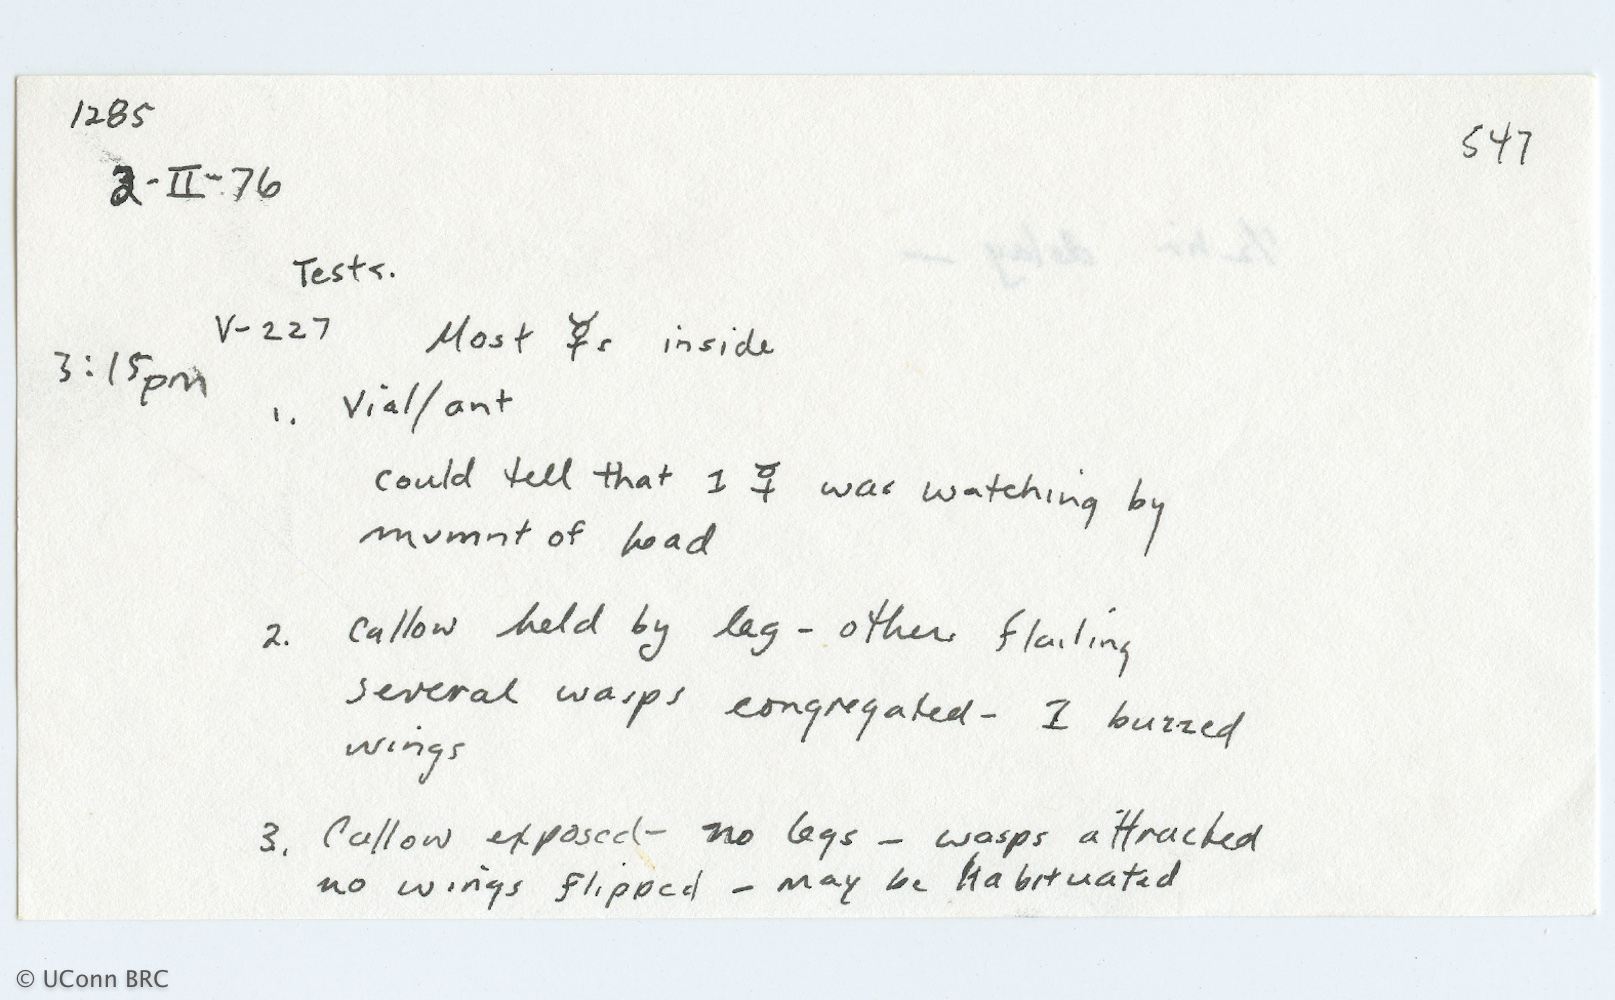 1285
547
2-II-76
Tests.
V-227 Most ☿s inside
3:15pm
1. Vial/ant
could tell that 1 ☿ was watching by
mvmnt of head
2. Callow held by leg - others flailing
several wasps congregated - I buzzed
wings
3. Callow exposed - no legs - wasps attracted
no wings flipped - may be Habituated
© UConn BRC